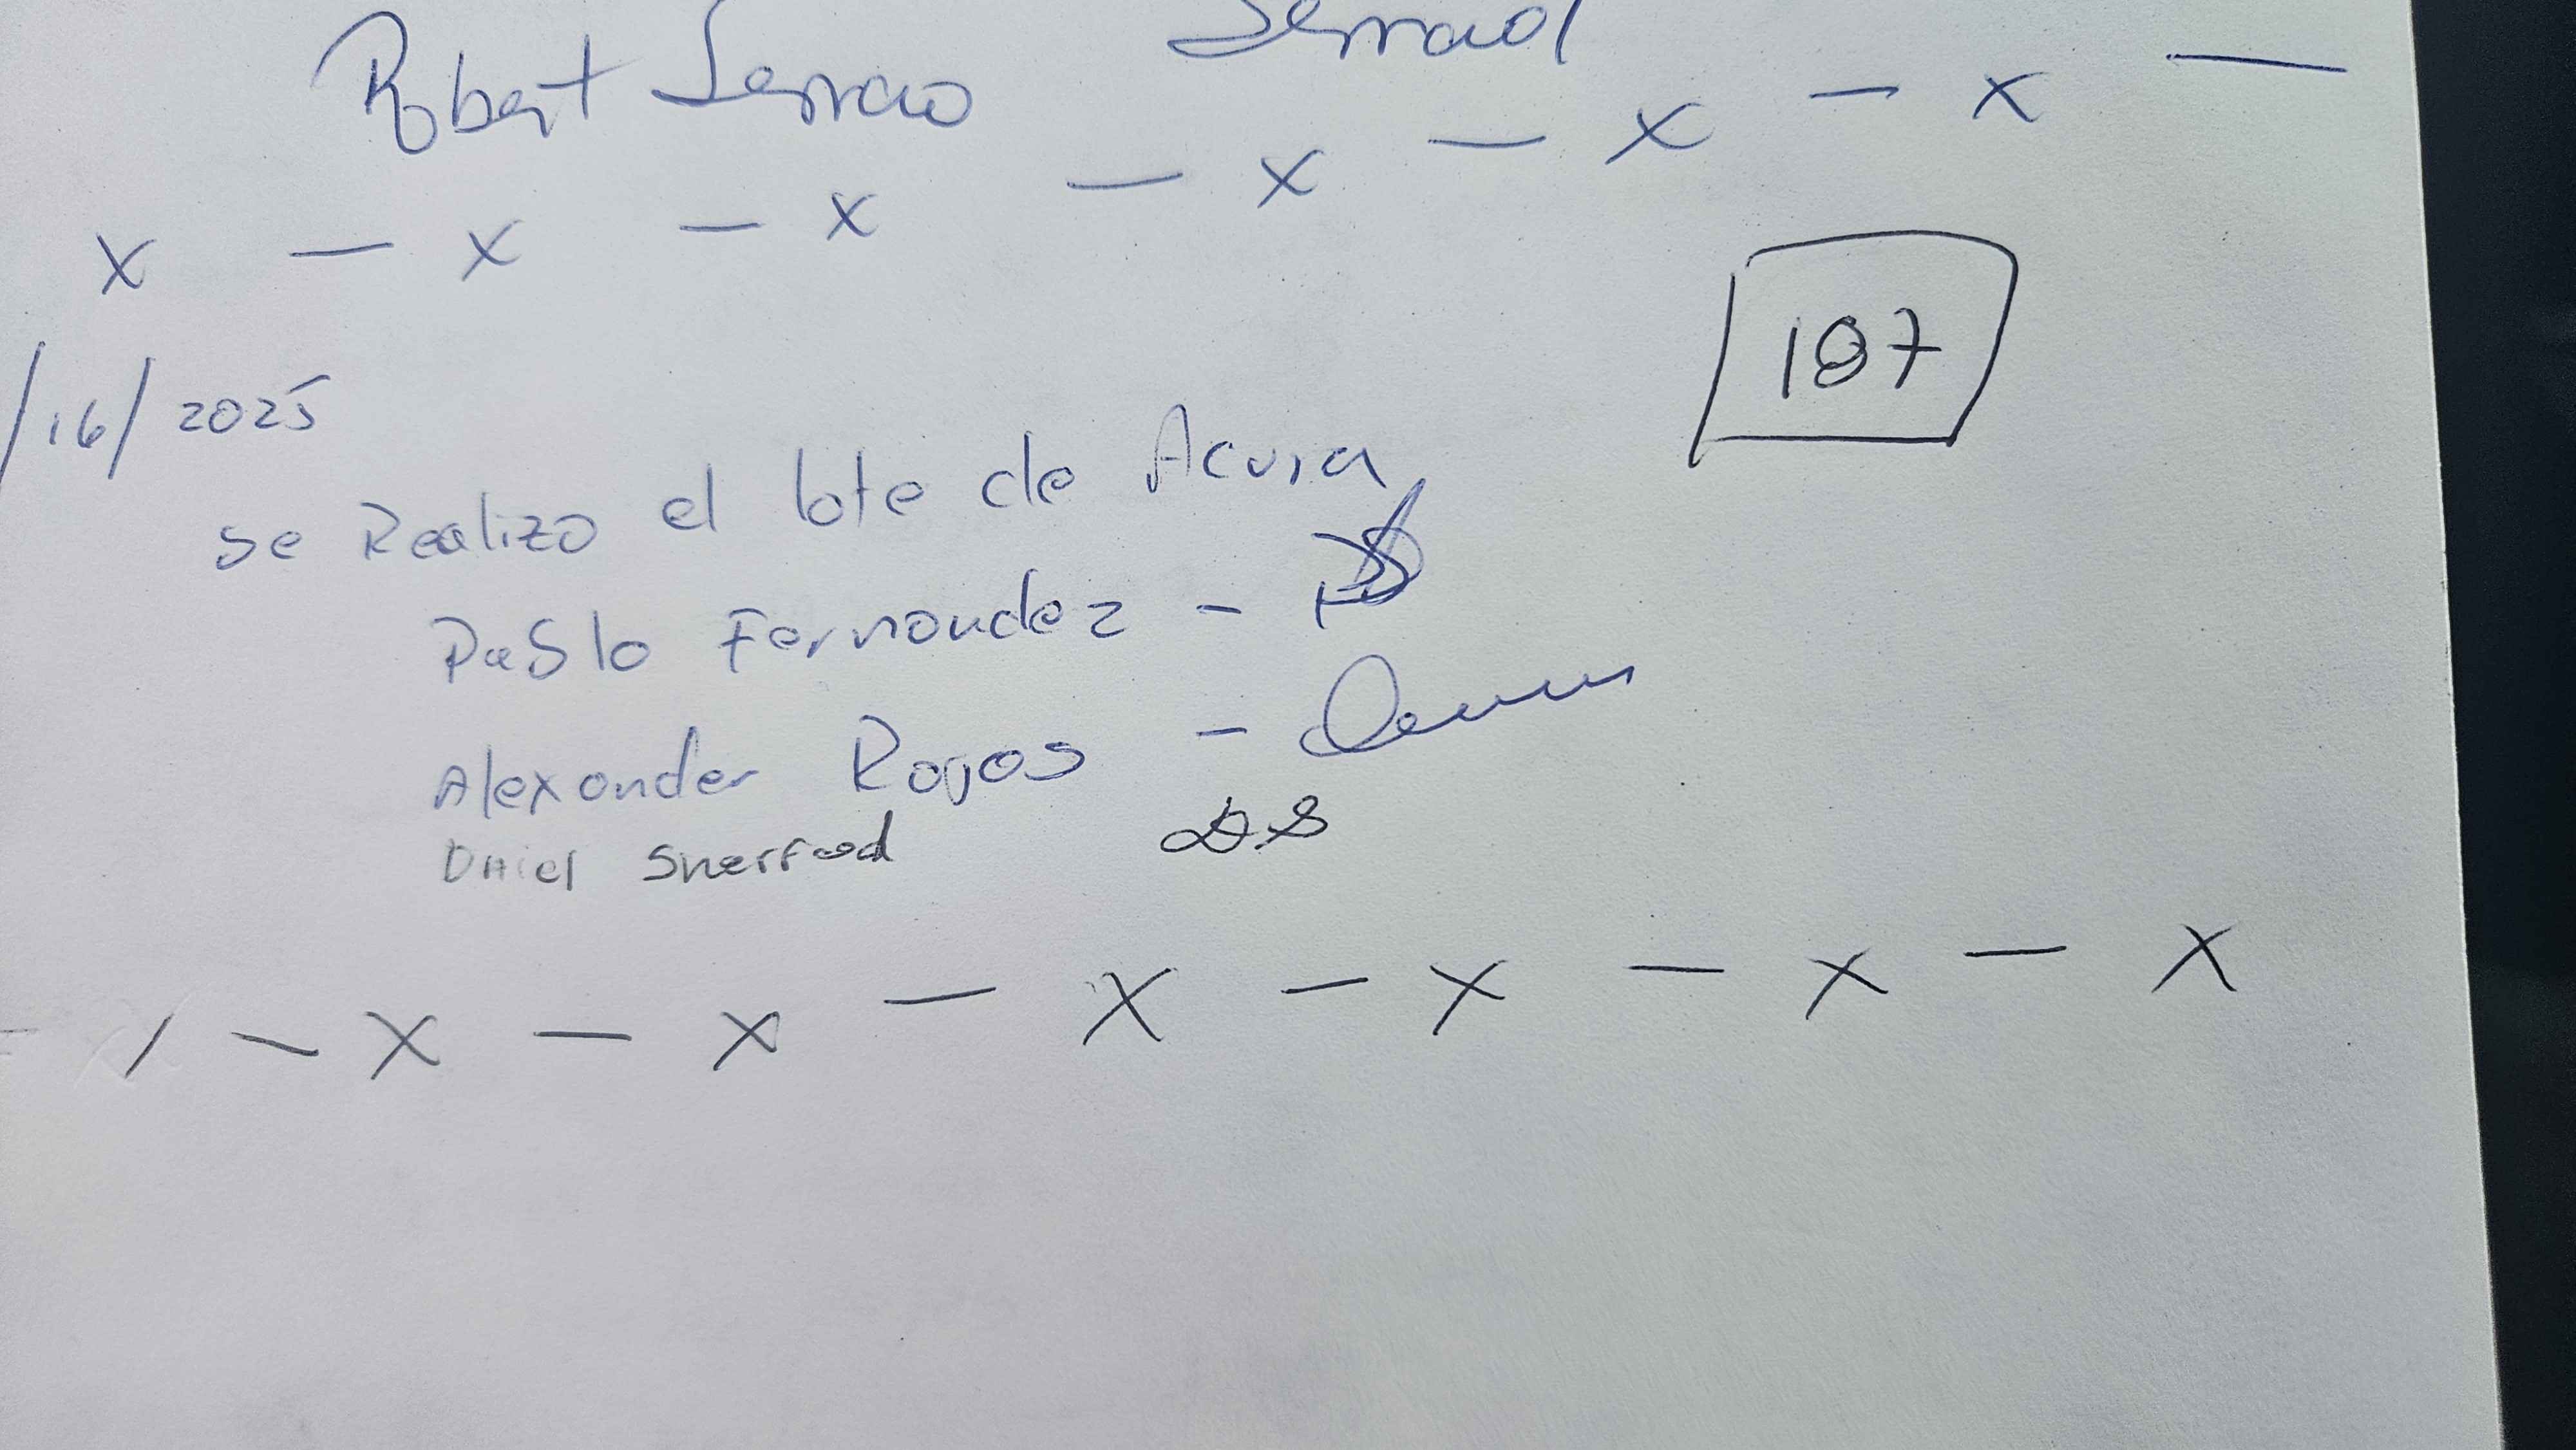 Robert Serrao
x - x - x - x - x - x -
187
/16/2025
se Realizo el lote de Acura
Pablo Fernandez -
Alexander Rojas -
DAiel Sherrod DS
- x - x - x - x - x - x - x